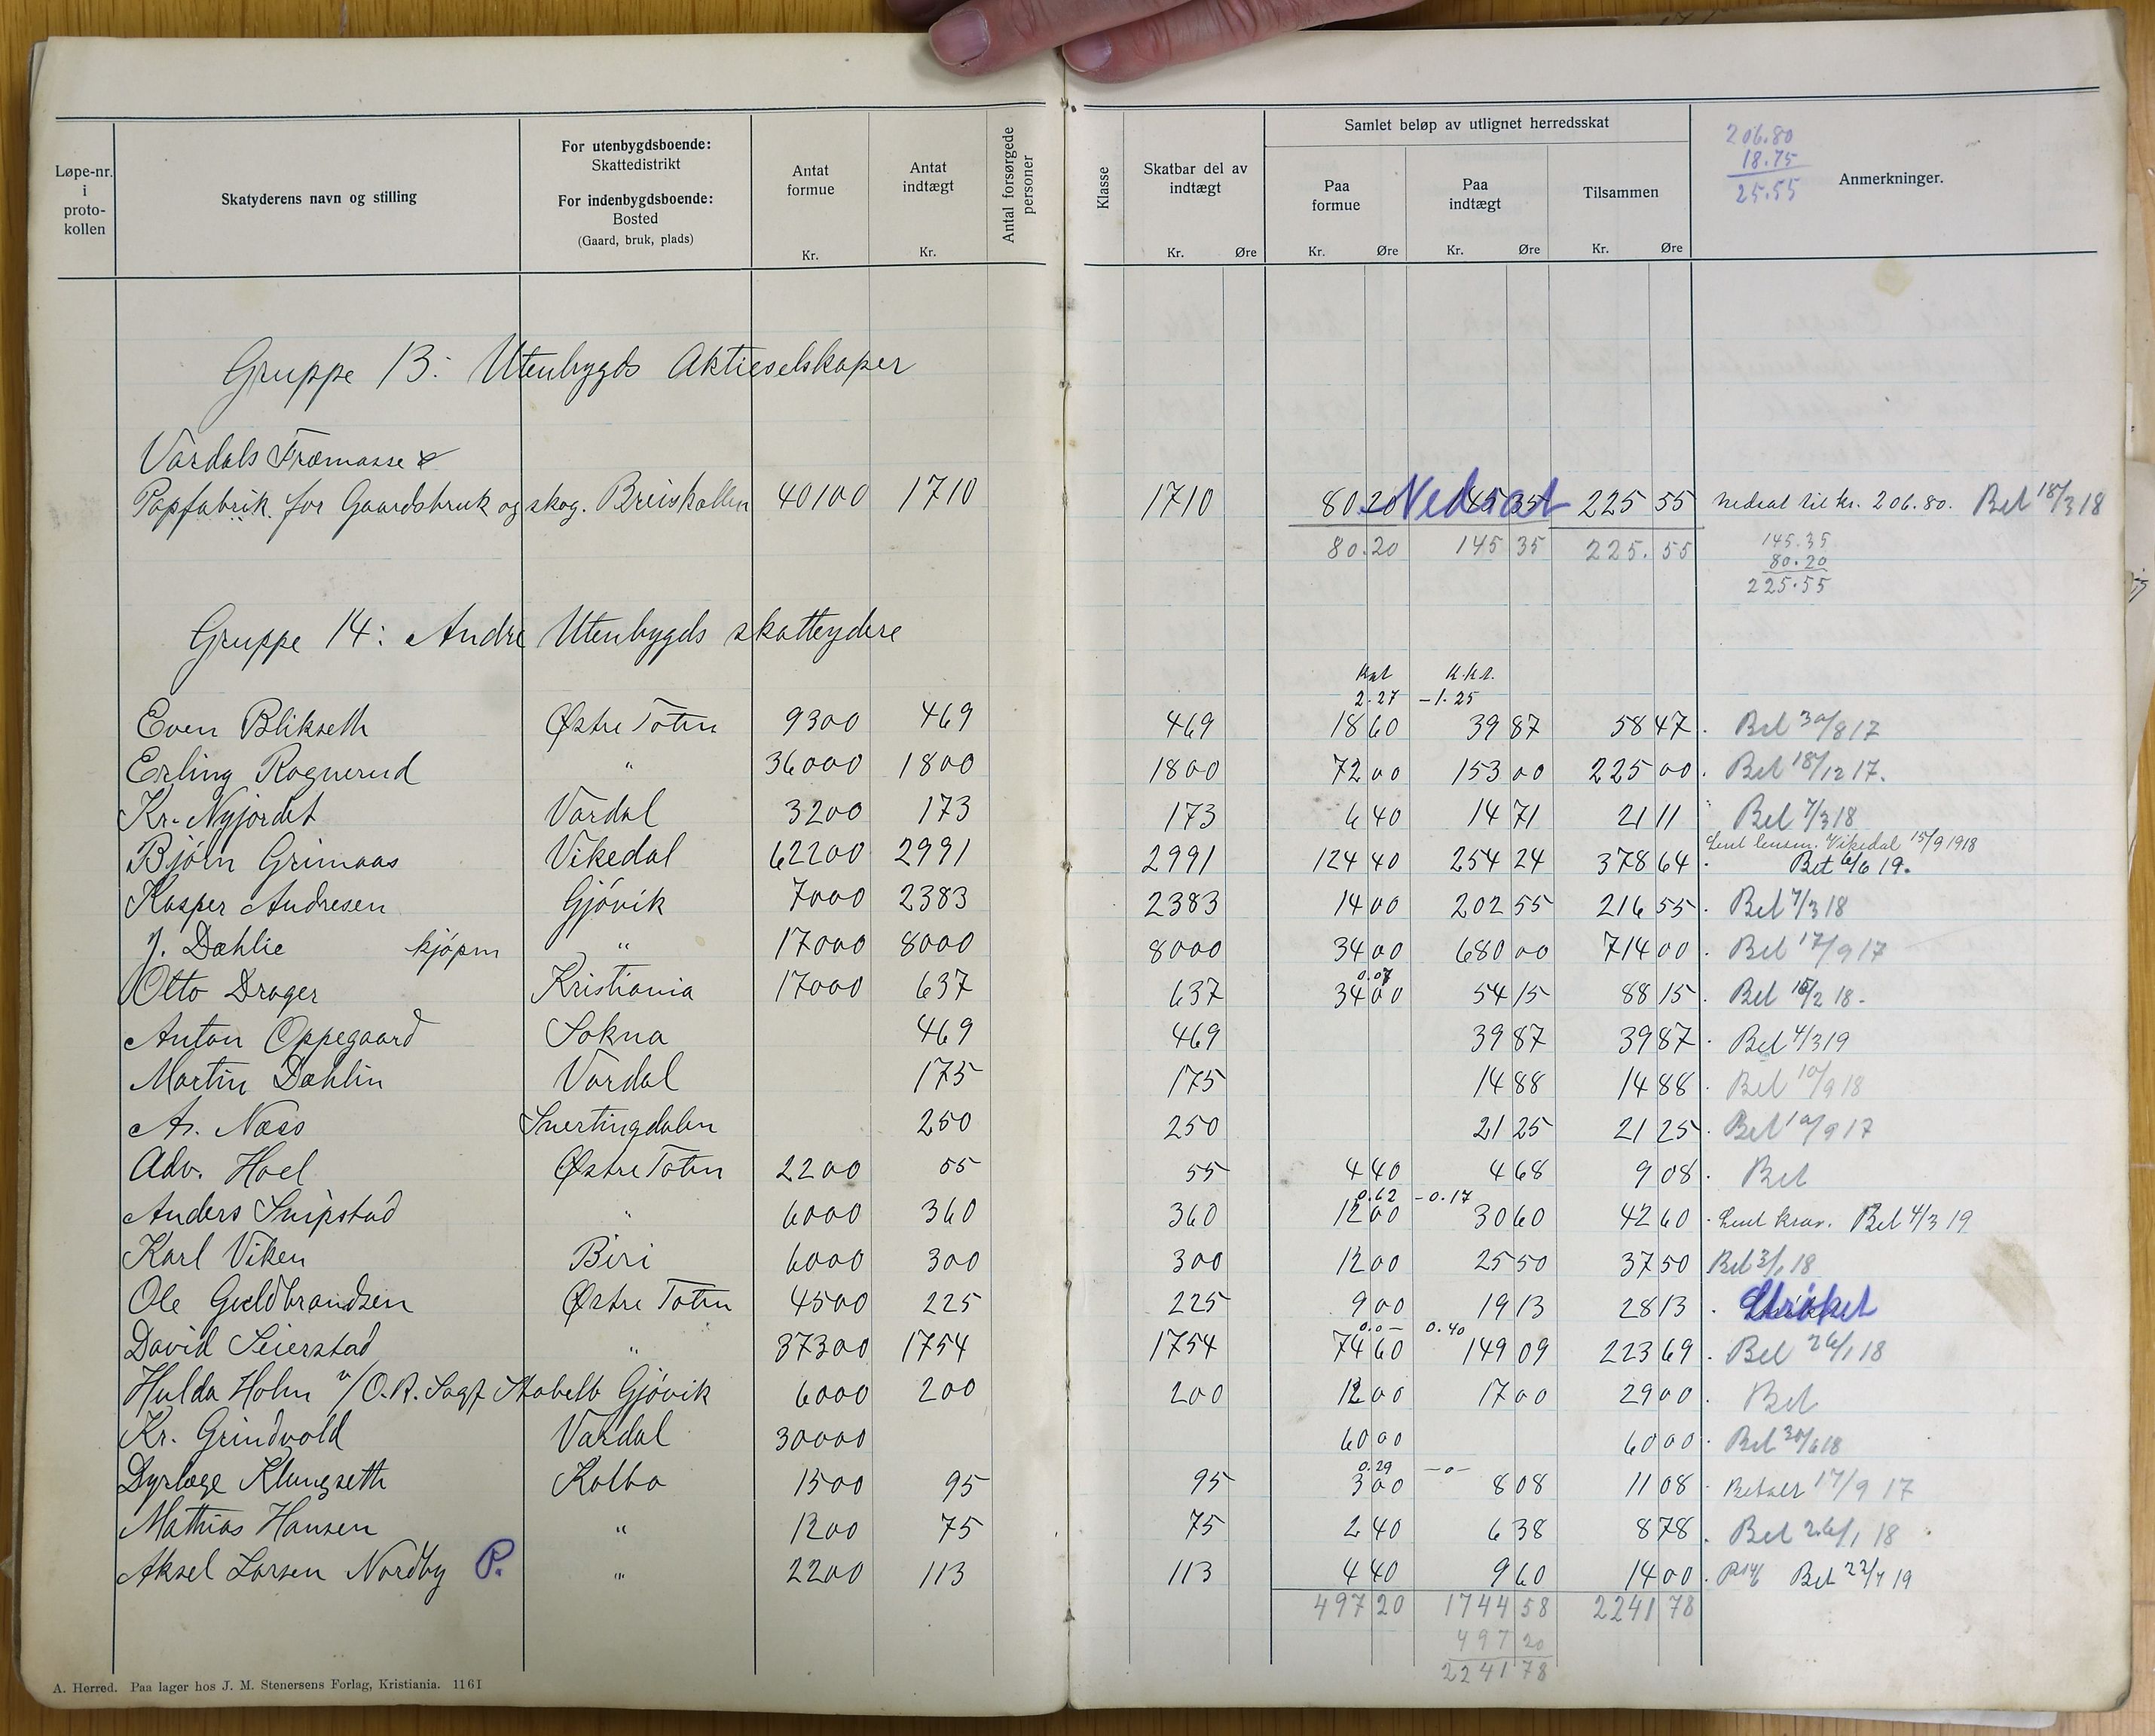 Løpe-nr. i proto-kollen | Skatyderens navn og stilling | For utenbygdsboende: Skattedistrikt For indenbygdsboende: Bosted (Gaard, bruk, plads) | Antat formue Kr. | Antat indtægt Kr. | Antal forsørgede personer | Klasse | Skatbar del av indtægt Kr. Øre | Samlet beløp av utlignet herredsskat | Paa formue Kr. Øre | Paa indtægt Kr. Øre | Tilsammen Kr. Øre | Anmerkninger.
206.80
18.75
25.55
Gruppe 13: Utenbygds Aktieselskaper
Vardals Træmasse &
Papfabrik for Gaardsbruk og skog. Breiskallen 40100 1710 1710 80 20 145 35 Nedsat 225 55 Nedsat til kr. 206.80. Bet 18/3 18
80.20 145 35 225.55
145.35
80.20
225.55
Gruppe 14: Andre Utenbygds skatteydere
2.27 - 1.25
Even Blikseth Østre Toten 9300 469 469 18 60 39 87 58 47. Bet 30/8 17
Erling Rognerud " 36000 1800 1800 72 00 153 00 225 00. Bet 18/12 17.
Kr. Nyjordet Vardal 3200 173 173 6 40 14 71 21 11 Bet 7/3 18
Sent lensm. Vikedal 15/9 1918
Bjørn Grimaas Vikedal 62200 2991 2991 124 40 254 24 378 64. Bet 6/6 19.
Kasper Andresen Gjövik 7000 2383 2383 14 00 202 55 216 55. Bet 7/3 18
J. Dæhlie kjöpm " 17000 8000 8000 34 00 680 00 714 00. Bet 17/9 17
0.07
Otto Drager Kristiania 17000 637 637 34 00 54 15 88 15. Bet 15/2 18-
Anton Oppegaard Sokna 469 469 39 87 39 87. Bet 4/3 19
Martin Dæhlin Vardal 175 175 14 88 14 88. Bet 10/9 18
A. Næss Snertingdalen 250 250 21 25 21 25. Bet 10/9 17
Adv. Hoel Østre Toten 2200 55 55 4 40 4 68 9 08. Bet
0.62 - 0.17
Anders Snipstad " 6000 360 360 12 00 30 60 42 60. Sent krav. Bet 4/3 19
Karl Viken Biri 6000 300 300 12 00 25 50 37 50 Bet 3/1 18
Ole Guldbrandsen Østre Toten 4500 225 225 9 00 19 13 28 13. Strøket
0.0- 0.40
David Seierstad " 37300 1754 1754 74 60 149 09 223 69. Bet 26/1 18
Hulda Holm a/O.R. Sagf Stabells Gjövik 6000 200 200 12 00 17 00 29 00. Bet
Kr. Grindvold Vardal 30000 60 00 60 00. Bet 30/6 18
0.29 -0-
Dyrlæge Klungseth Kolbo 1500 95 95 3 00 8 08 11 08. Betalt 17/9 17
Mathias Hansen " 1200 75 75 2 40 6 38 8 78. Bet 26/1 18
Aksel Larsen Nordby P. " 2200 113 113 4 40 9 60 14 00. Bet 22/7 19
497 20 1744 58 2241 78
497 20
2241 78
A. Herred. Paa lager hos J. M. Stenersens Forlag, Kristiania. 1161